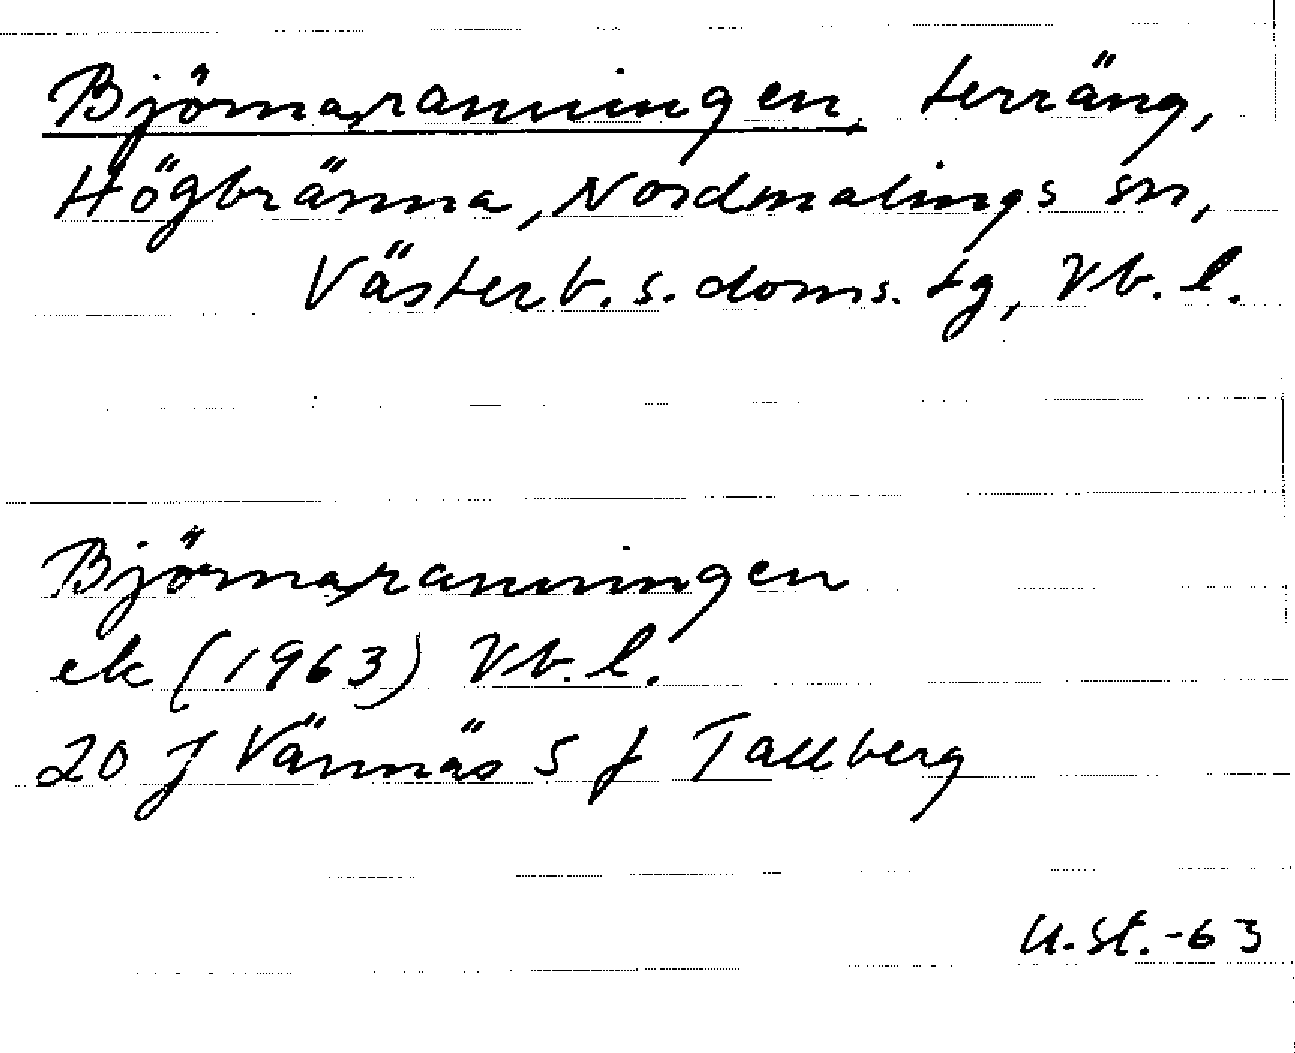 Björnaranningen, terräng,
Högbränna, Nordmalings sn,
Västerb. s. doms. tg, Vb. l.
Björnaranningen
ek (1963) Vb. l.
20 J Vännäs S f Tallberg
U. St. -63